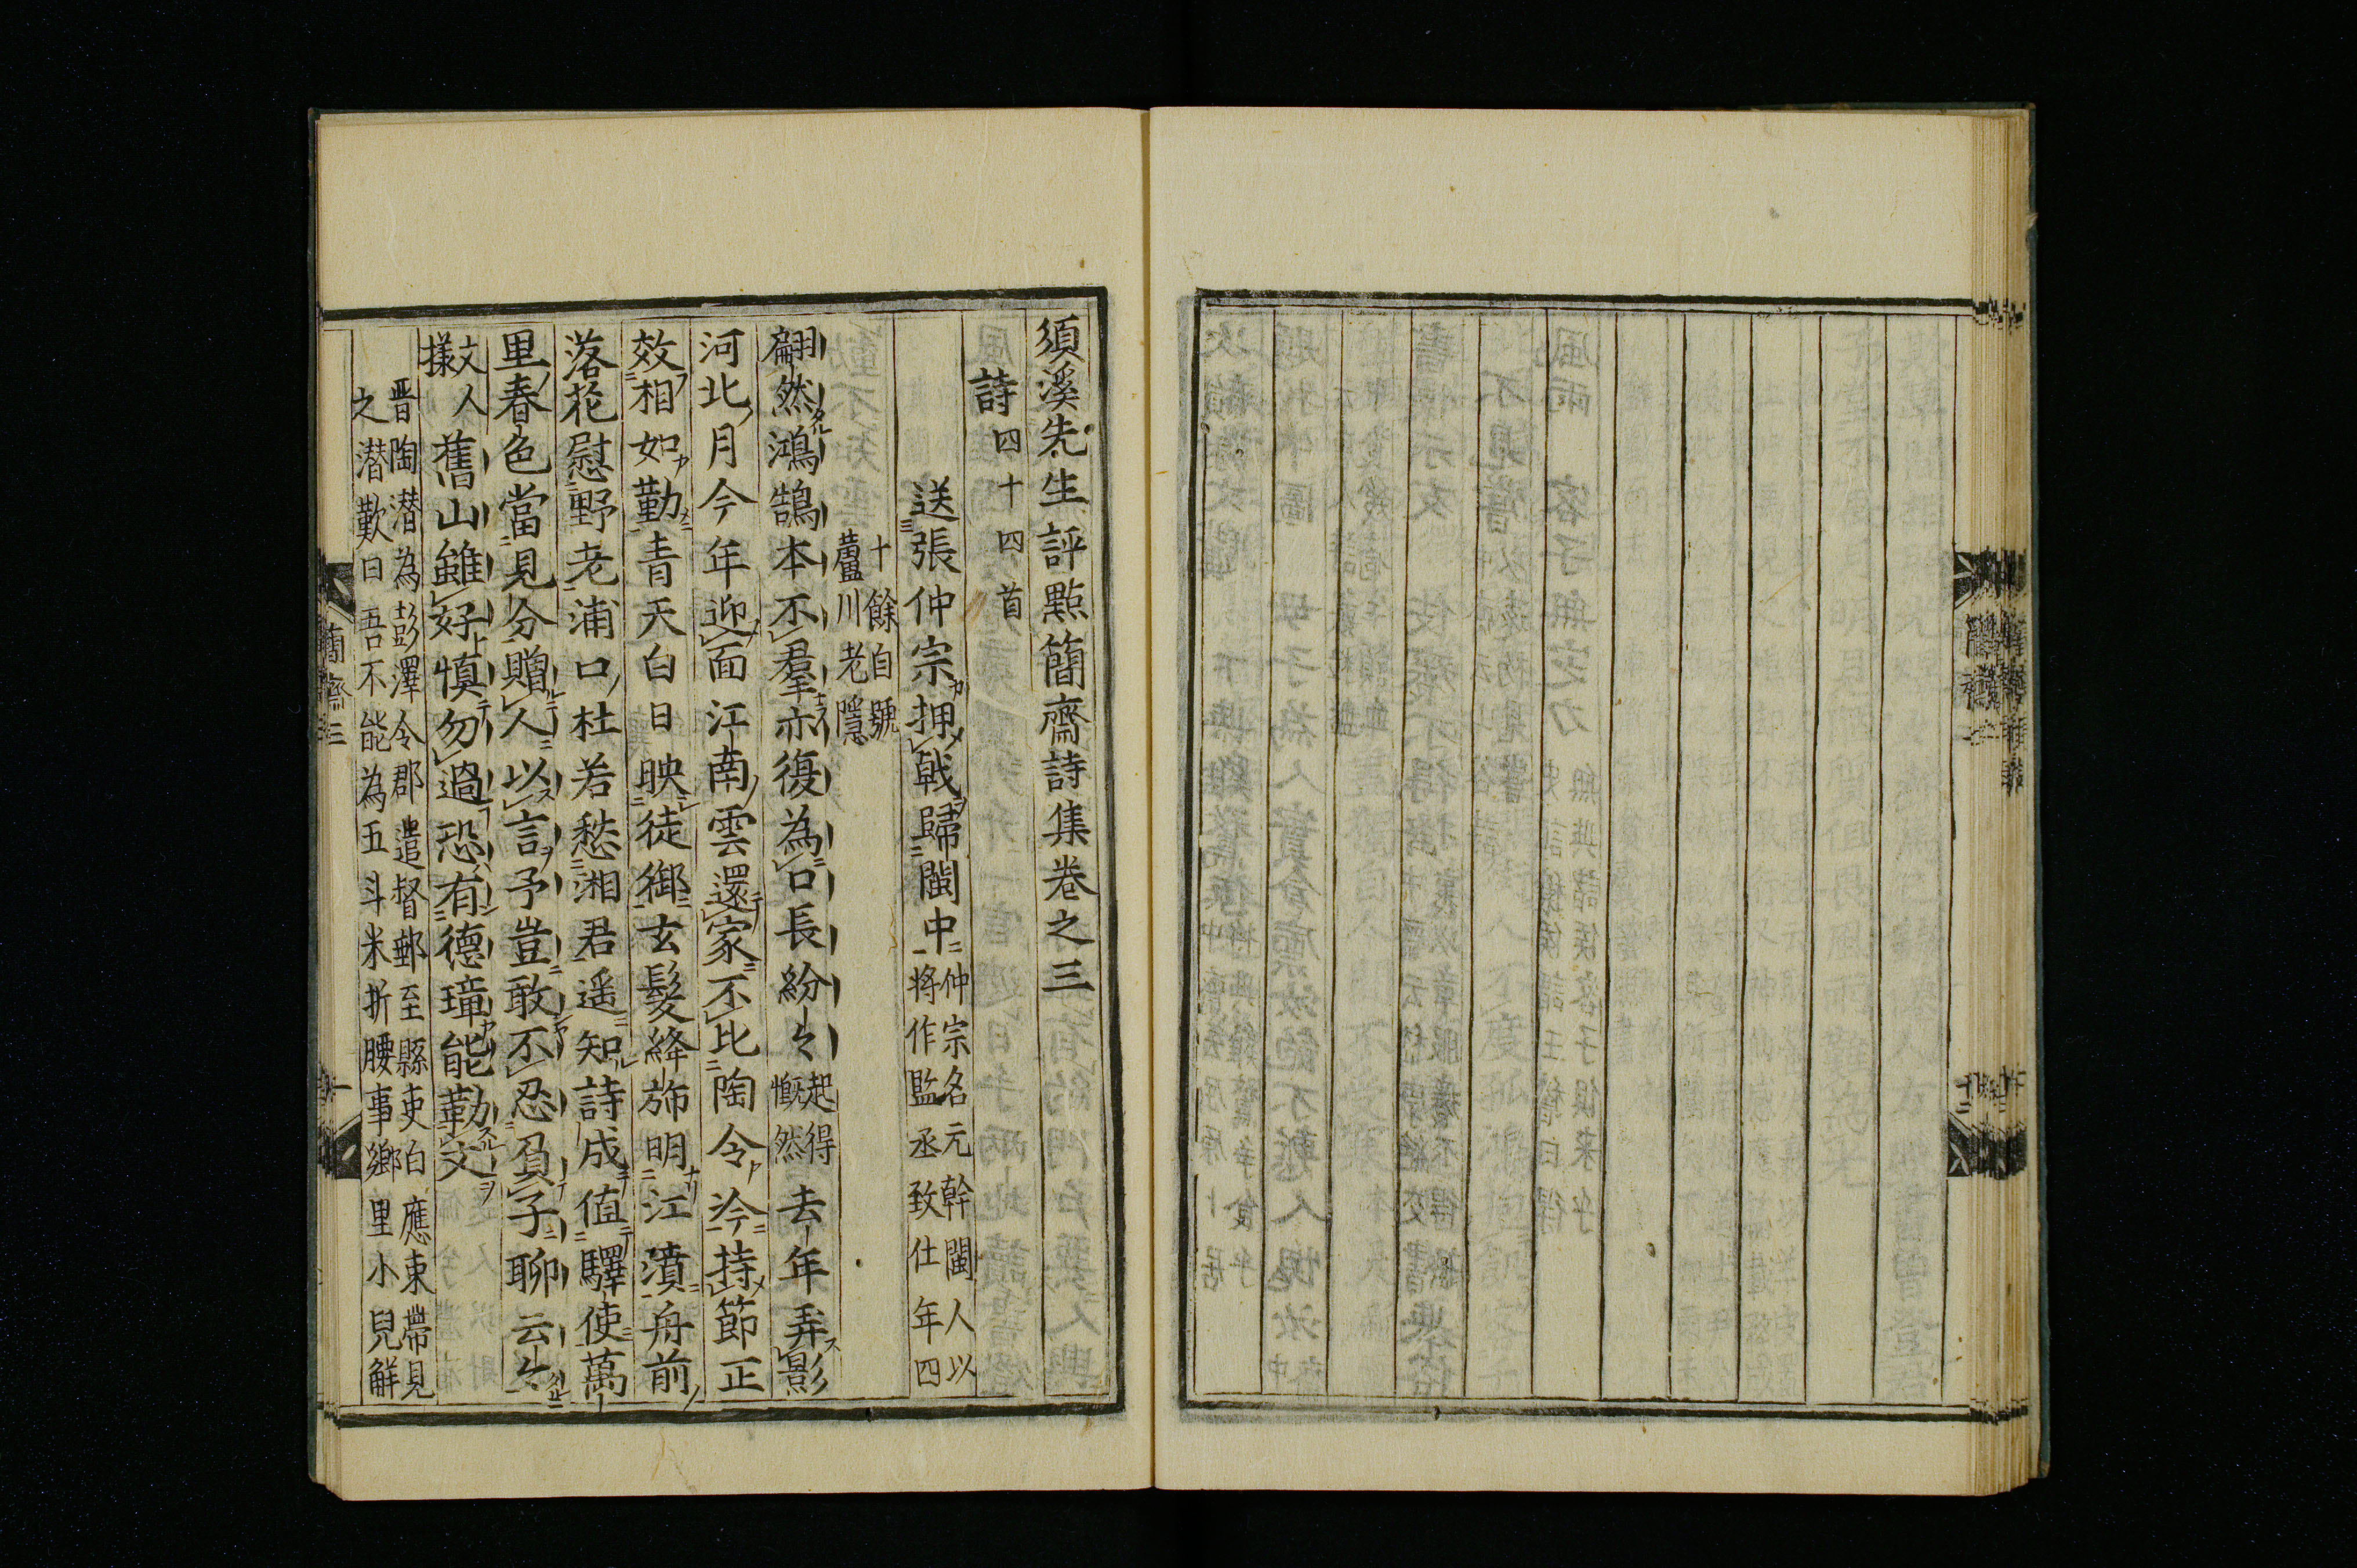 須溪先生評點簡齋詩集卷之三
詩四十四首
送張仲宗押戟歸閩中
仲宗名元幹閩人以
將作監丞致仕年四
十餘自號
蘆川老隱
翩然鴻鵠本不羣亦復為口長紛々
起得
慨然
去年弄影
河北月今年迎面江南雲還家不比陶令冷持節正
效相如勤青天白日映徒御玄髮絳旆明江濆舟前
落花慰野老浦口杜若愁湘君遥知詩成值驛使萬
里春色當見分贈人以言予豈敢不忍負子聊云々
文人
㨾
舊山雖好慎勿過恐有德璋能勒文
晋陶潜為彭澤令郡遣督郵至縣吏白應束帶見
之潜歎日吾不能為五斗米折腰事鄉里小兒解
簡齋三
一